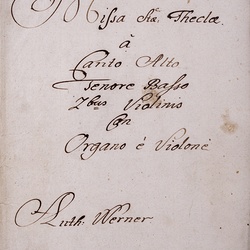 Missa Stæ Theclæ
à
Canto Alto
Tenore Basso
2bus Violinis
Con
Organo è Violone
Auth: Werner